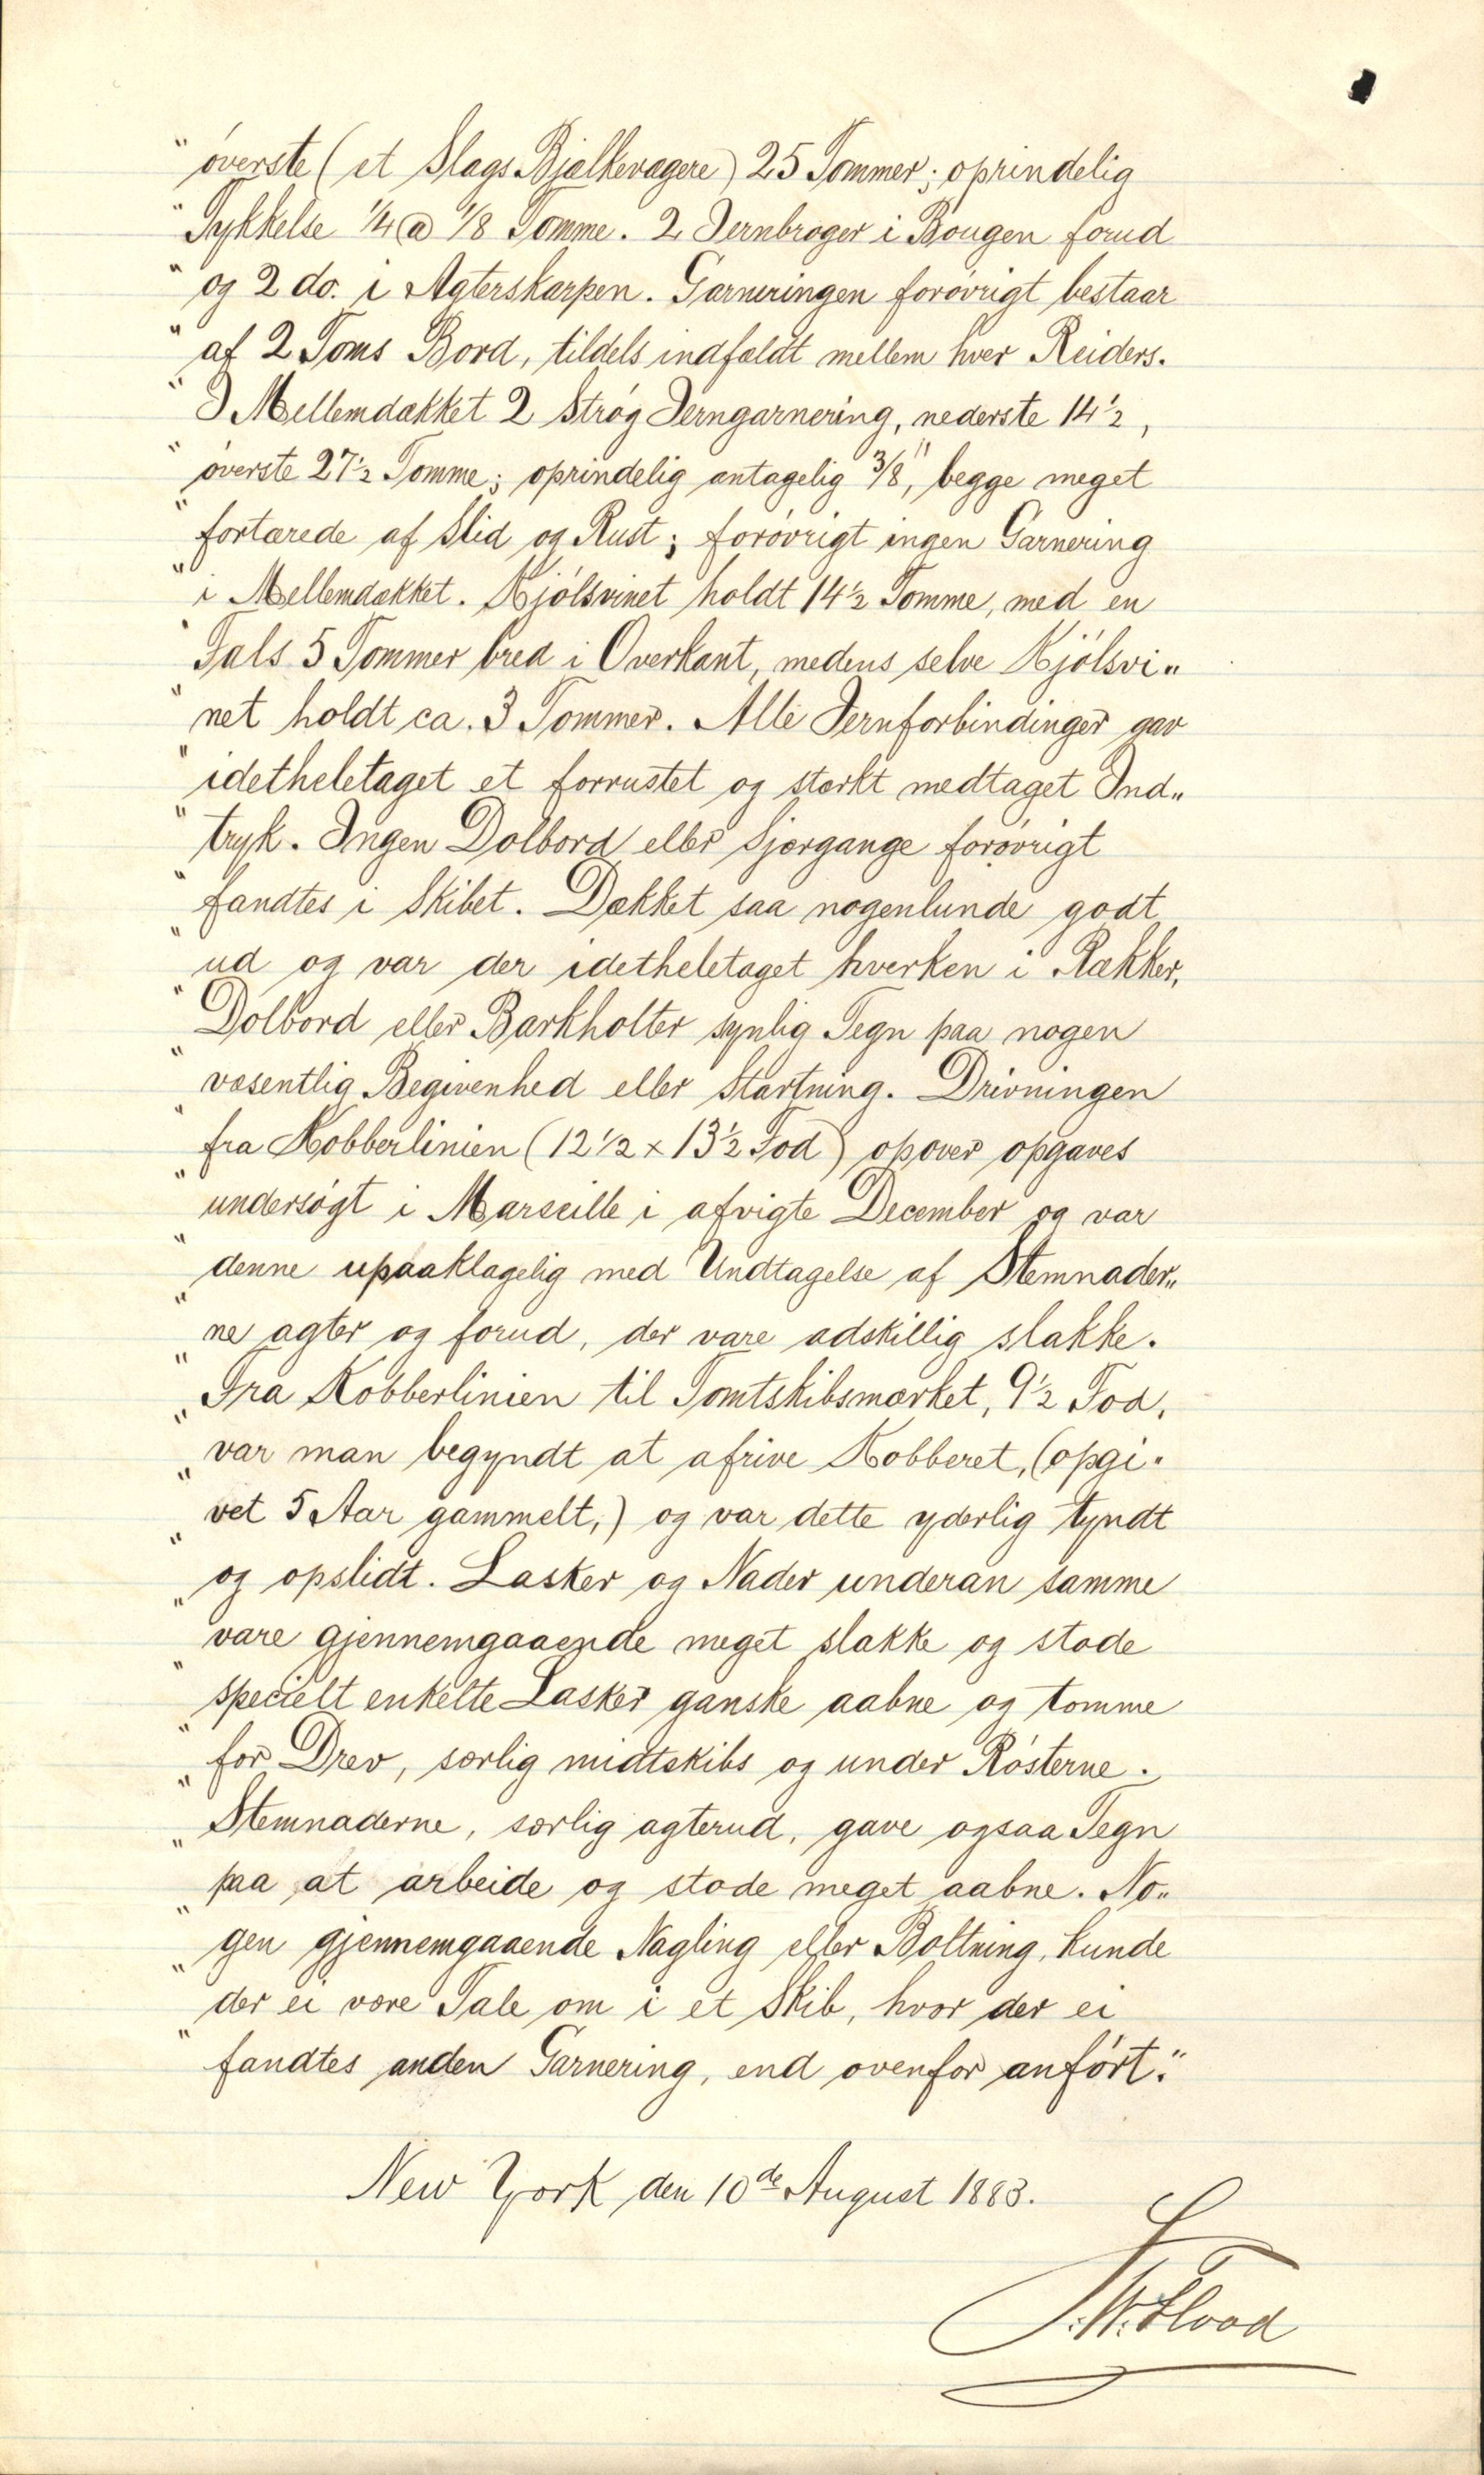 " óverste (et Slags Bjælkevægere) 25 Tommer; oprindelig
" Tykkelse 1/4 @ 1/8 Tomme. 2 Jernbroger i Bougen forud
" og 2 do. i Agterskarpen. Garneringen forøvrigt bestaar
" af 2 Toms Bord, tildels indfældt mellem hver Reiders.
" I Mellemdækket 2 Stróg Jerngarnering, nederste 14 1/2,
" óverste 27 1/2 Tomme; oprindelig antagelig 3/8", begge meget
" fortærede af Slid og Rust; foróvrigt ingen Garnering
" i Mellemdækket. Kjólsvinet holdt 14 1/2 Tomme, med en
" Fals 5 Tommer bred i Overkant, medens selve Kjólsvi„
" net holdt ca. 3 Tommer. Alle Jernforbindinger gav
" idetheletaget et forrustet og stærkt medtaget Ind„
" tryk. Ingen Dolbord eller Sjærgange foróvrigt
" fandtes i Skibet. Dækket saa nogenlunde godt
" ud og var der idetheletaget hverken i Rækker,
" Dolbord eller Barkholter synlig Tegn paa nogen
" væsentlig Begivenhed eller Stærtning. Drivningen
" fra Kobberlinien (12 1/2 x 13 1/2 Fod) opover opgaves
" undersógt i Marseille i afvigte December og var
" denne upaaklagelig med Undtagelse af Stemnader„
" ne agter og forud, der vare adskillig slakke.
" Fra Kobberlinien til Tomtskibsmærket, 9 1/2 Fod,
" var man begyndt at afrive Kobberet, (opgi„
" vet 5 Aar gammelt,) og var dette yderlig tyndt
" og opslidt. Lasker og Nader underan samme
" vare gjennemgaaende meget slakke og stode
" specielt enkelte Lasker ganske aabne og tomme
" for Drev, særlig midtskibs og under Rósterne.
" Stemnaderne, særlig agterud, gave ogsaa Tegn
" paa at arbeide og stode meget aabne. No„
" gen gjennemgaaende Nagling eller Boltning, kunde
" der ei være Tale om i et Skib, hvor der ei
" fandtes anden Garnering, end ovenfor anfórt."
New York den 10de August 1883.
S. W. Flood